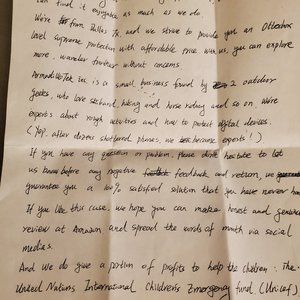 can find it enjoyable as much as we do.
We're from Dallas TX, and we strive to provide you an Otterbox
level supreme protection with affordable price with us, you can explore
more, wander further without concerns
ArmadilloTek Inc is a small business found by 2 outdoor
geeks, who love skiing and hiking and horse riding and so on. We're
experts about rough activities and how to protect digital devices.
(Yep, after dozens shattered phones, we become experts!)
If you have any question or problem, please don't hesitate to let
us know before any negative feedback and return, we
guarantee you a 100% satisfied solution that you have never
If you like this case, we hope you can make honest and genuine
review at Amazon and spread the words of mouth via social
medias.
And we do give a portion of profits to help the children: The
United Nations International Children's Emergency fund (Unicef)